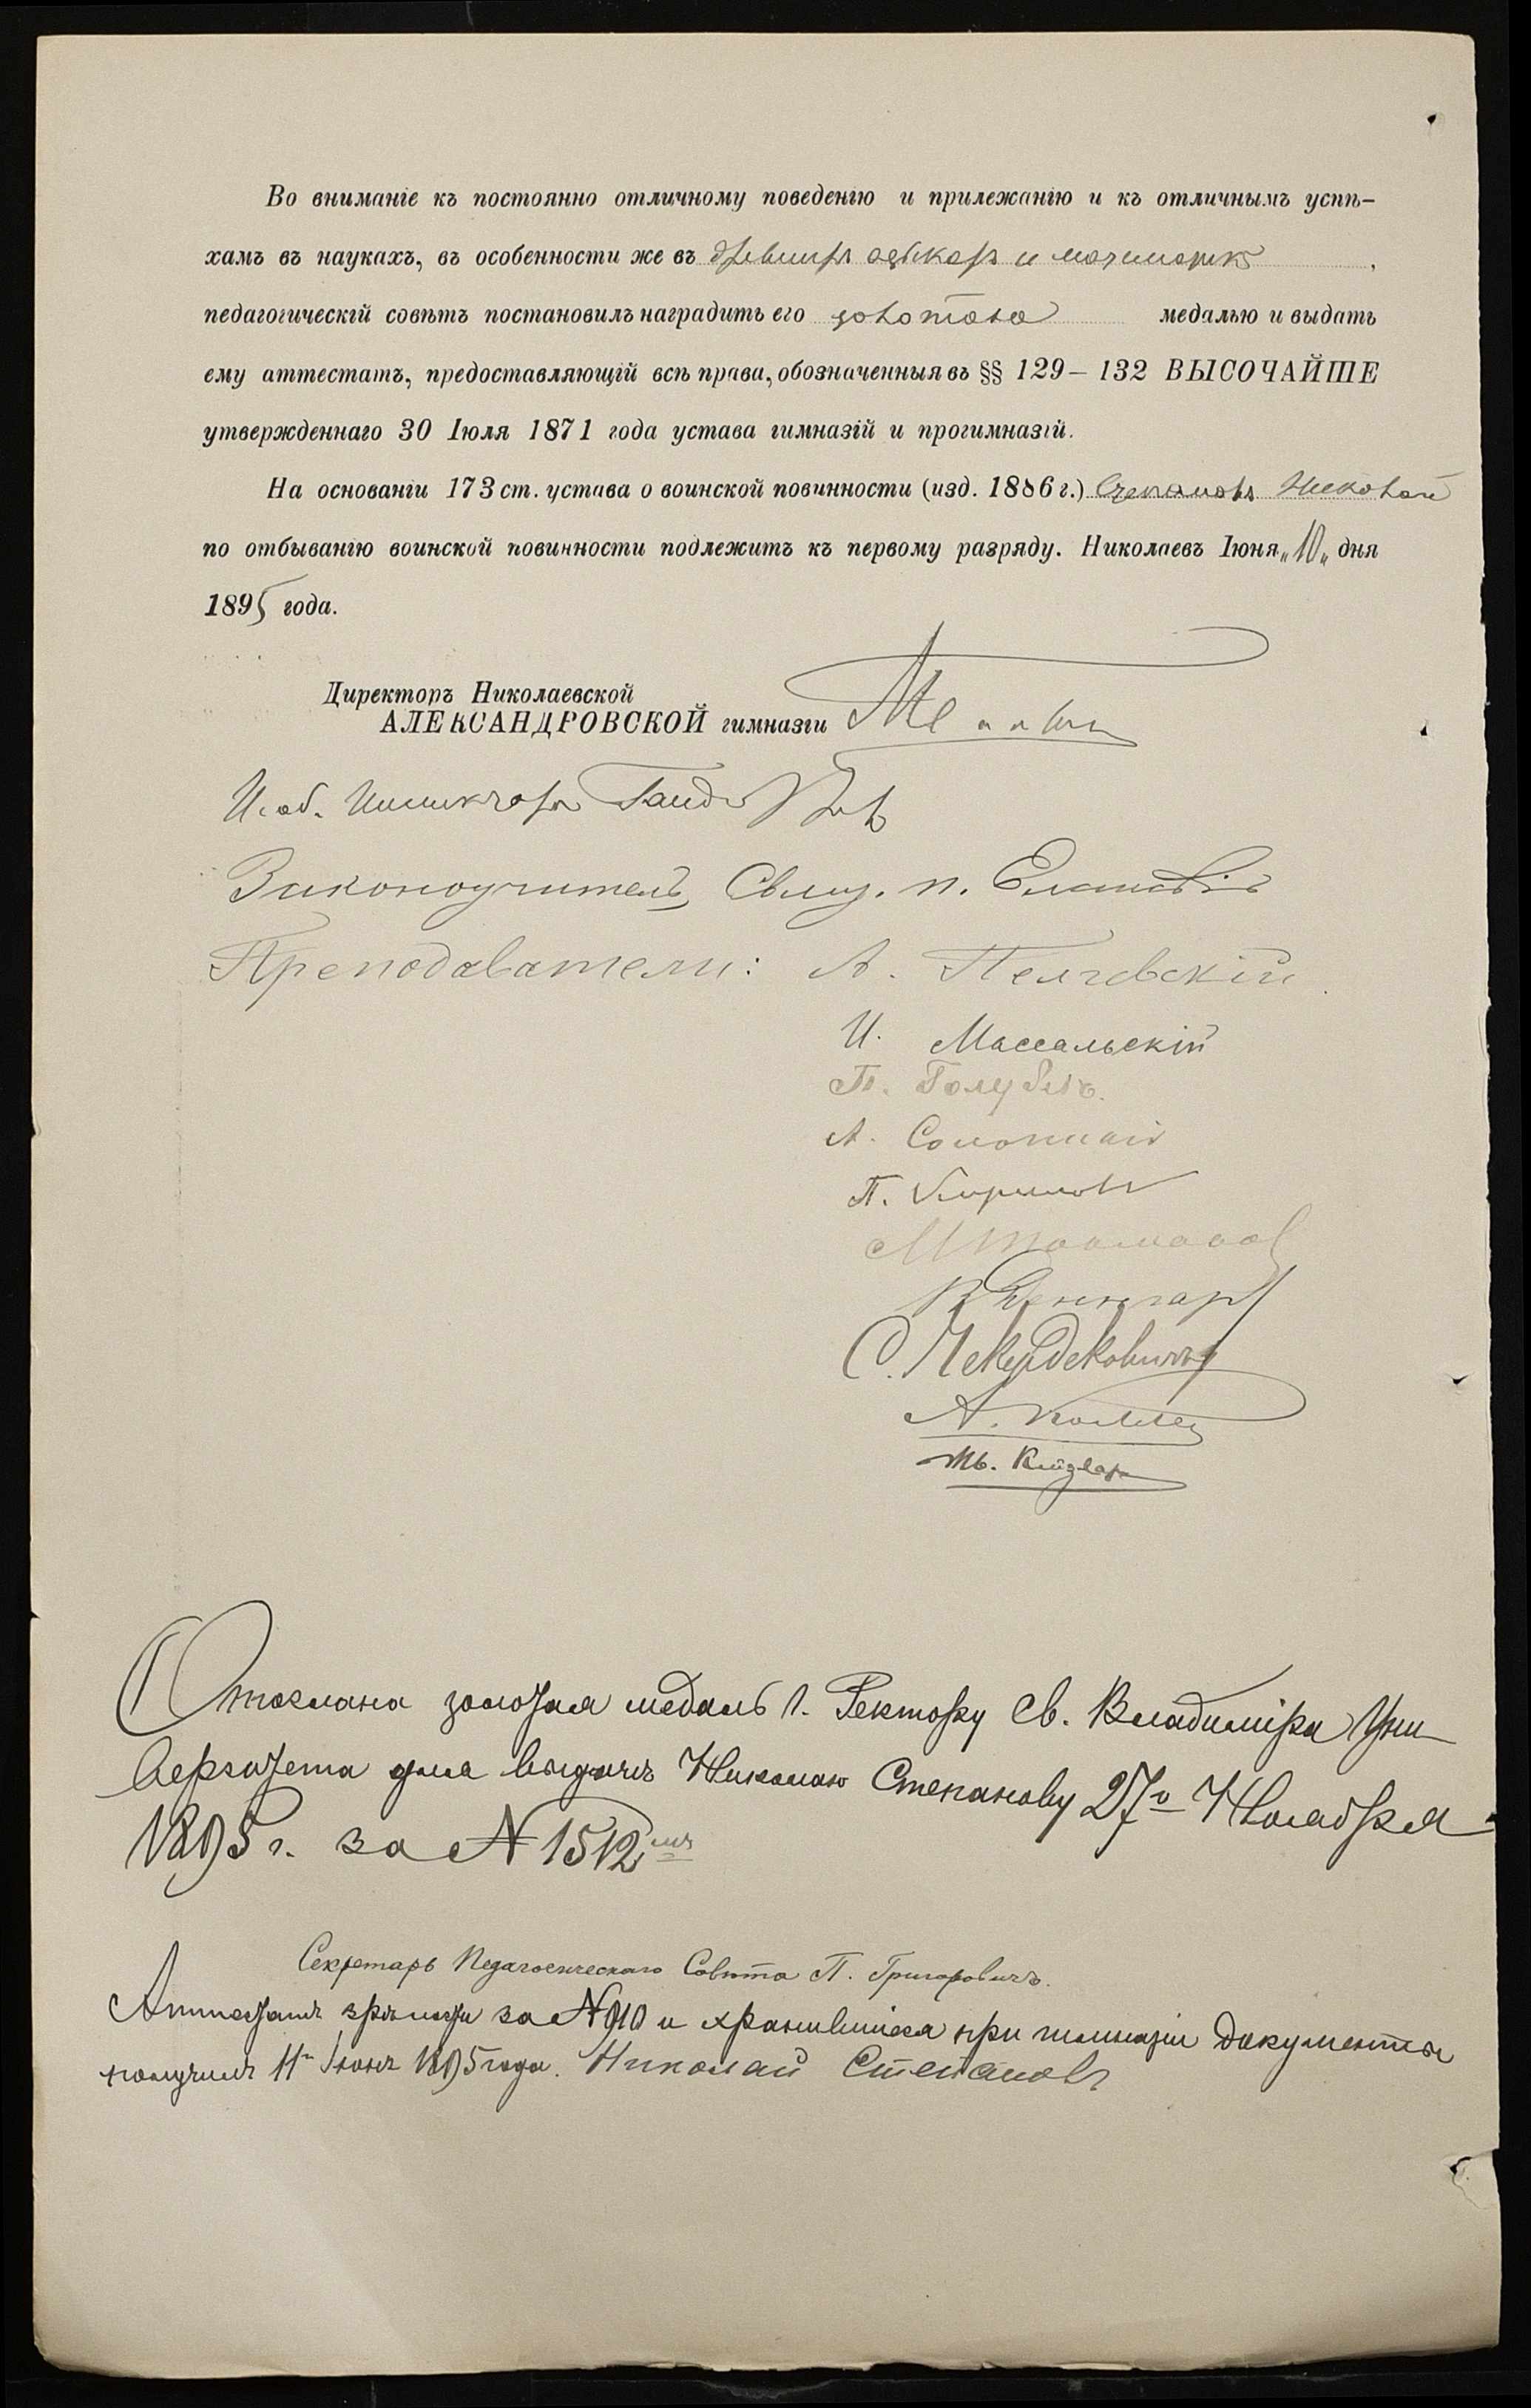 Во вниманіе къ постоянно отличному поведенію и прилежанію и къ отличнымъ успѣ-
хамъ въ наукахъ, въ особенности же въ древнихъ языкахъ и математикѣ,
педагогическій совѣтъ постановилъ наградить его золотою медалью и выдать
ему аттестатъ, предоставляющій всѣ права, обозначенныя въ §§ 129–132 ВЫСОЧАЙШЕ
утвержденнаго 30 Іюля 1871 года устава гимназій и прогимназій.
На основаніи 173 ст. устава о воинской повинности (изд. 1886 г.) Степановъ Николай
по отбыванію воинской повинности подлежитъ къ первому разряду. Николаевъ Іюня „10„ дня
1895 года.
Директоръ Николаевской
АЛЕКСАНДРОВСКОЙ гимназіи
Исп. об. Инспектора
Законоучитель Свящ. п.
Преподаватели: А.
И. Массальскій
П. Голубовъ.
А.
П. Кирилловъ
М
В
С. Чекурдековичъ
А.
Отослана золотая медаль г. Ректору Св. Владиміра Уни-
верситета для выдачи Николаю Степанову 27го Ноября
1895 г. за № 1512мъ
Секретарь Педагогическаго Совѣта П. Григоровичъ.
Аттестатъ зрѣлости за № 910 и хранившіеся при гимназіи документы
получилъ 11го Іюня 1895 года. Николай Степановъ